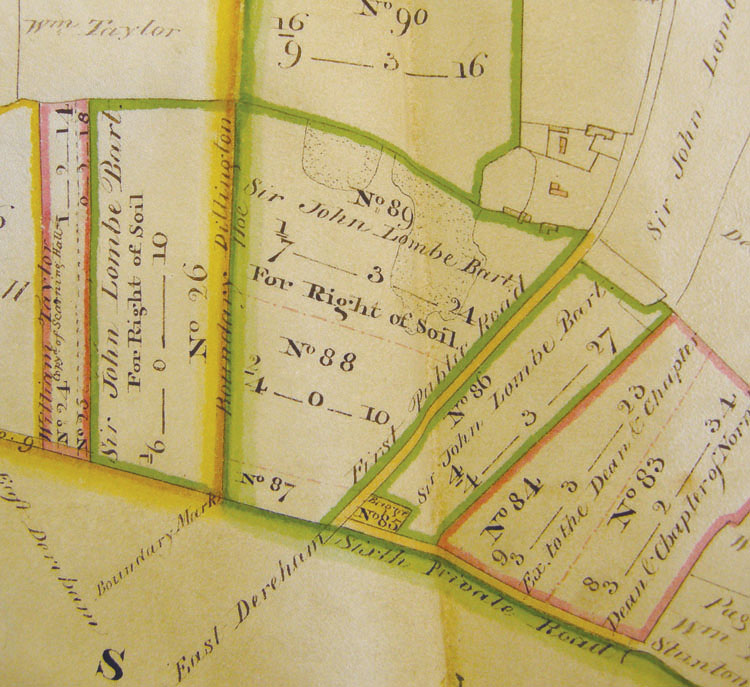 Wm Taylor
No 90
16
9 — 3 — 16
Sir John Lombe
William Taylor
No 24
1 — 2 — 14
No 25
Sir John Lombe Bart.
For Right of Soil
1
6 — 0 — 10
No 26
Boundary Dillington Hoe
No 89
Sir John Lombe Bart.
1
7 — 3 — 24
For Right of Soil
No 88
2
4 — 0 — 10
No 87
First Public Road
No 86
Sir John Lombe Bart.
4
4 — 3 — 27
No 85
No 84
9
3 — 3 — 23
Ex. to the Dean & Chapter
No 83
8
3 — 2 — 34
Dean & Chapter of Norw
Sixth Private Road
East Dereham
Boundary Mark
East Dereham
S
Wm
Stanton